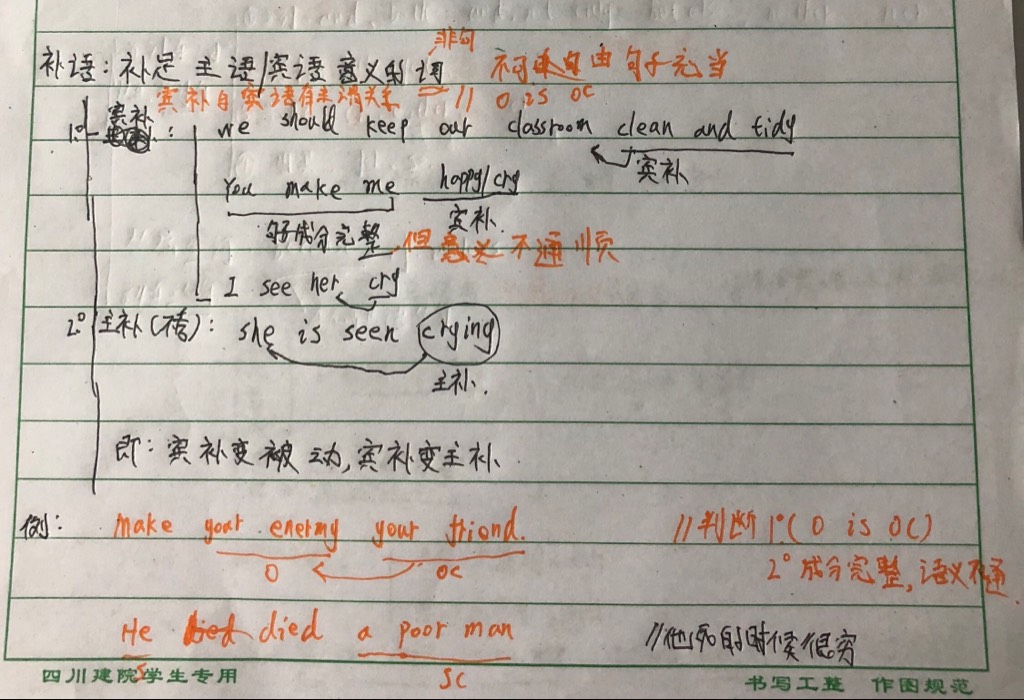 非句
补语：补足 主语/宾语 意义的词 不可 由 句子充当
宾补自宾语有主谓关系 // O is OC
1° 宾补： we should keep our classroom clean and tidy
宾补
You make me happy/cry
句子成分完整，但意义不通顺 宾补.
I see her cry
2° 主补(不考)： she is seen crying
主补.
即：宾补变被动，宾补变主补.
例： make your enermy your friend. //判断 1°( O is OC)
O OC 2° 成分完整，语义不通
He died a poor man //他死的时候很穷
S SC
四川建院学生专用 书写工整 作图规范